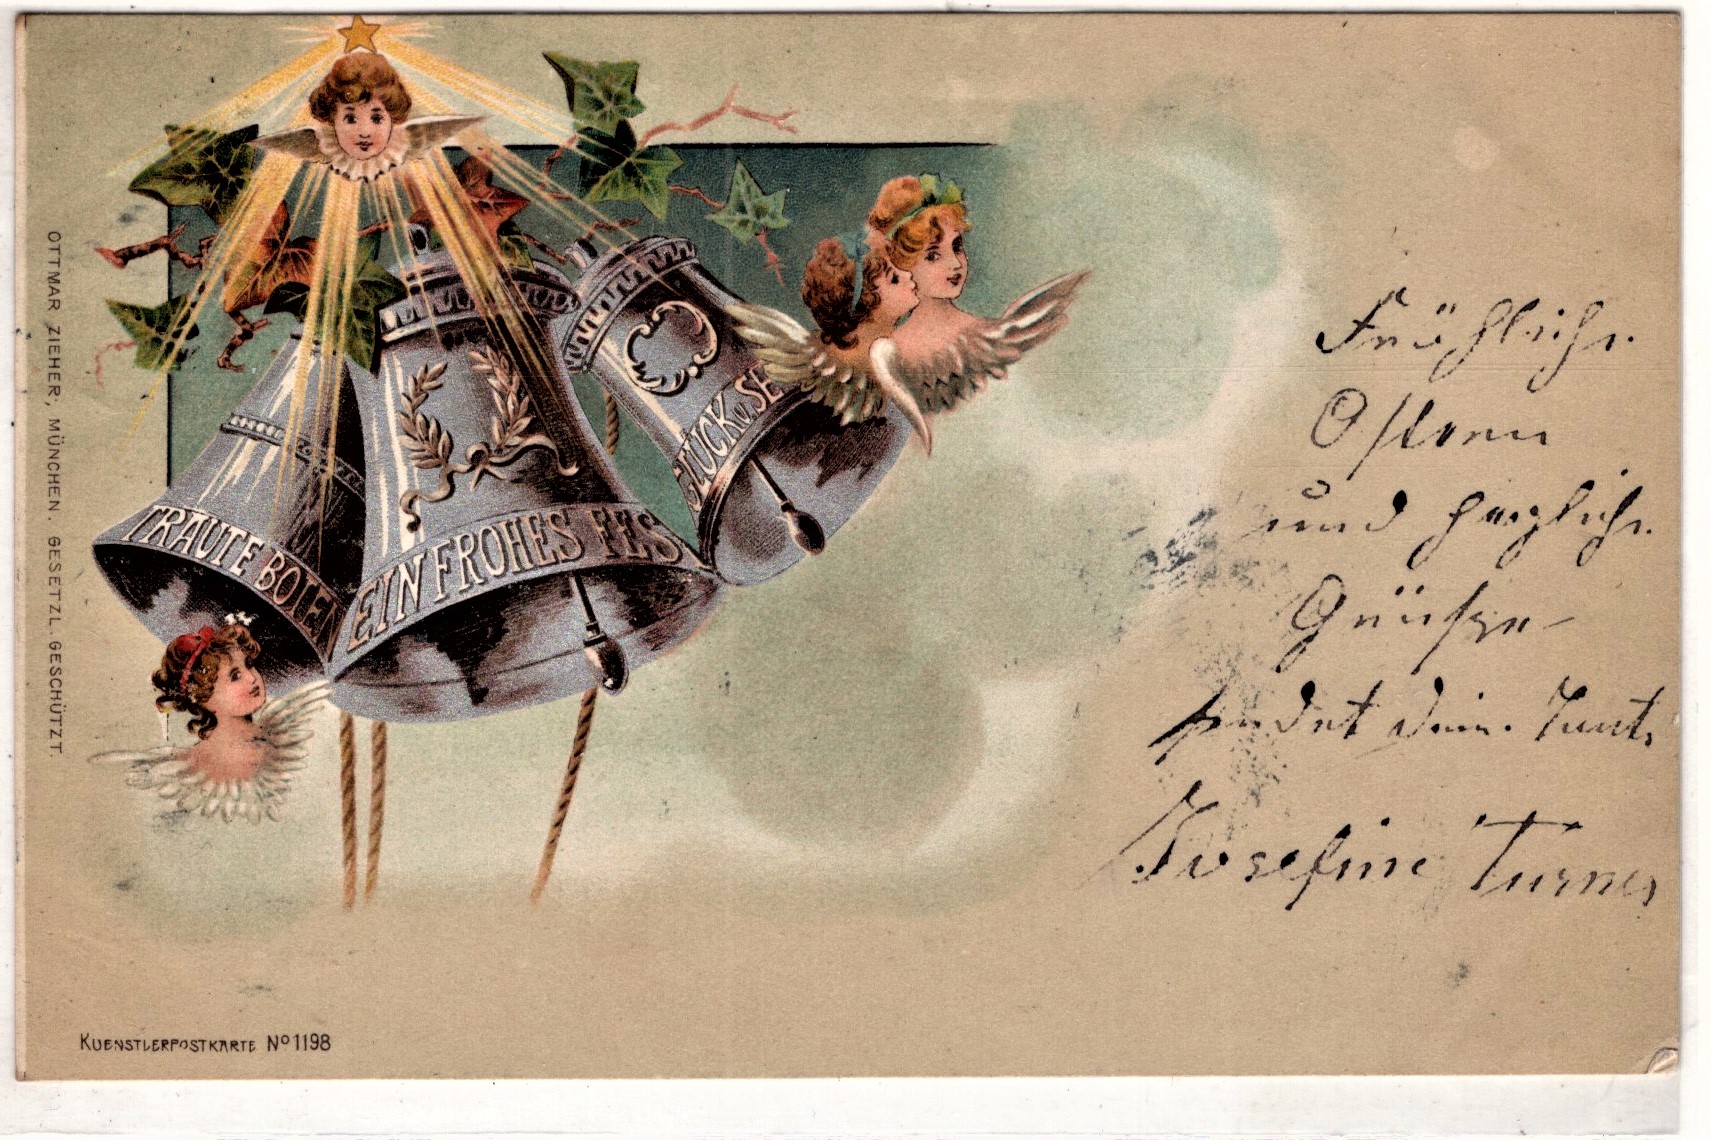 OTTMAR ZIEHER, MÜNCHEN. GESETZL. GESCHÜTZT.
TRAUTE BOTEN
EIN FROHES FES
GLÜCK U. SE
Fröhliche
Ostern
und herzliche
Grüße
sendet Dein. Tante
Josefine Turner
KUENSTLERPOSTKARTE No 1198